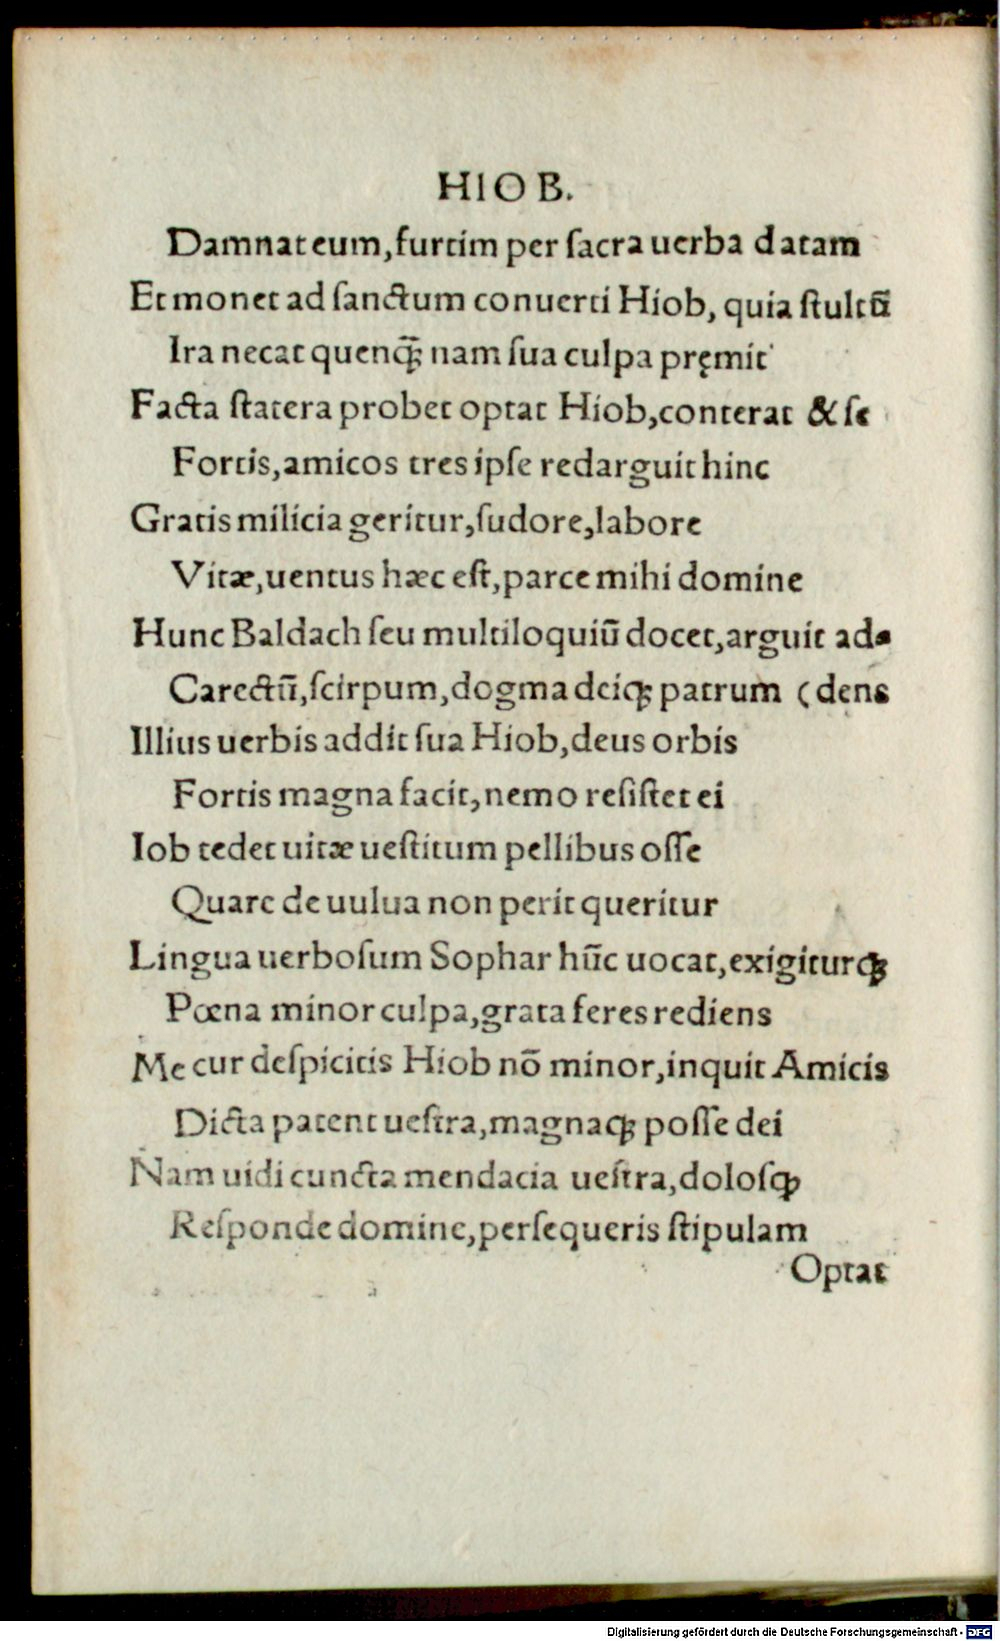 HIOB.
Damnat eum, furtim per ſacra uerba datam
Et monet ad ſanctum conuerti Hiob, quia ſtultū
Ira necat quenq̄ꝫ nam ſua culpa pręmit
Facta ſtatera probet optat Hiob, conterat & ſe
Fortis, amicos tres ipſe redarguit hinc
Gratis milicia geritur, ſudore, labore
Vitæ, uentus hæc eſt, parce mihi domine
Hunc Baldach ſeu multiloquiū docet, arguit ad-
Carectū, ſcirpum, dogma deiqꝫ patrum (dens
Illius uerbis addit ſua Hiob, deus orbis
Fortis magna facit, nemo reſiſtet ei
Iob tedet uitæ ueſtitum pellibus oſſe
Quare de uulua non perit queritur
Lingua uerboſum Sophar hūc uocat, exigiturqꝫ
Pœna minor culpa, grata feres rediens
Me cur deſpicitis Hiob nō minor, inquit Amicis
Dicta patent ueſtra, magnaqꝫ poſſe dei
Nam uidi cuncta mendacia ueſtra, doloſqꝫ
Reſponde domine, perſequeris ſtipulam
Optat
Digitalisierung gefördert durch die Deutsche Forschungsgemeinschaft - DFG